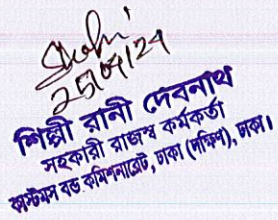 25/04/24
শিল্পী রানী দেবনাথ
সহকারী রাজস্ব কর্মকর্তা
কাস্টমস বন্ড কমিশনারেট, ঢাকা (দক্ষিণ), ঢাকা।